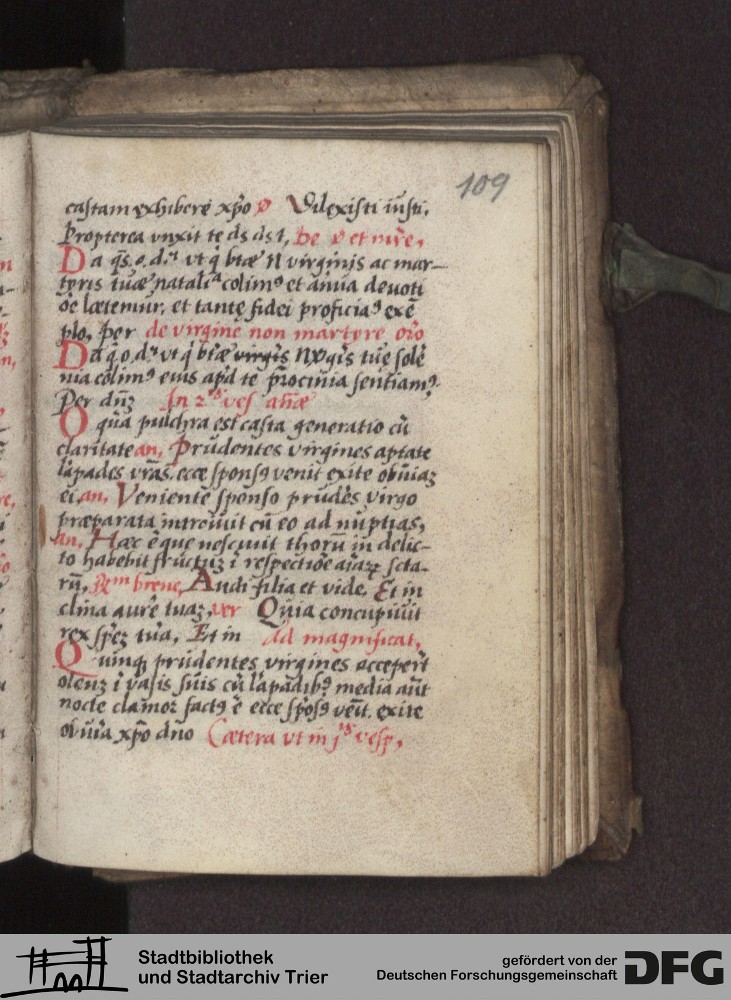 109
castam exhibere xp̄o ℣ Dilexisti iusti,
Propterea vnxit te ds ds t,
Da qs. o. d. vt q btæ N virginis ac mar-
tyris tuæ natalia colimꝰ et annua deuoti
õe lætemur, et tantę fidei proficiaꝰ exẽ
plo, Per de virgine non martyre oro
Da q. o. d. vt q btæ virgis tue solẽ
nia colimꝰ eius apd te
Per dnꝫ In 2ꝭ ves añæ
O quā pulchra est casta generatio cū
claritate an, Prudentes virgines aptate
lāpades vrās, ecce sponsꝰ venit exite obuiaꝫ
ei. an, Veniente sponso prudēs virgo
præparata introiuit cū eo ad nuptias,
an, Hæc ē que nesciuit thorū in delic-
to habebit fructuꝫ i respectiõe aīaꝝ scta-
rū, Rm breue, Audi filia et vide, Et in
clina aurē tuaꝫ, ver Quia concupiuit
rex spēꝫ tua, Et in Ad magnificat,
Quinqꝫ prudentes virgines acceperūt
oleuꝫ ī vasis suis cū lāpadibꝰ media aūt
nocte clamor factꝰ ē ecce spōsꝰ venit, exite
obuia xp̄o dño Cætera vt in jꝭ vesp,
Stadtbibliothek
und Stadtarchiv Trier
gefördert von der
Deutschen Forschungsgemeinschaft
DFG